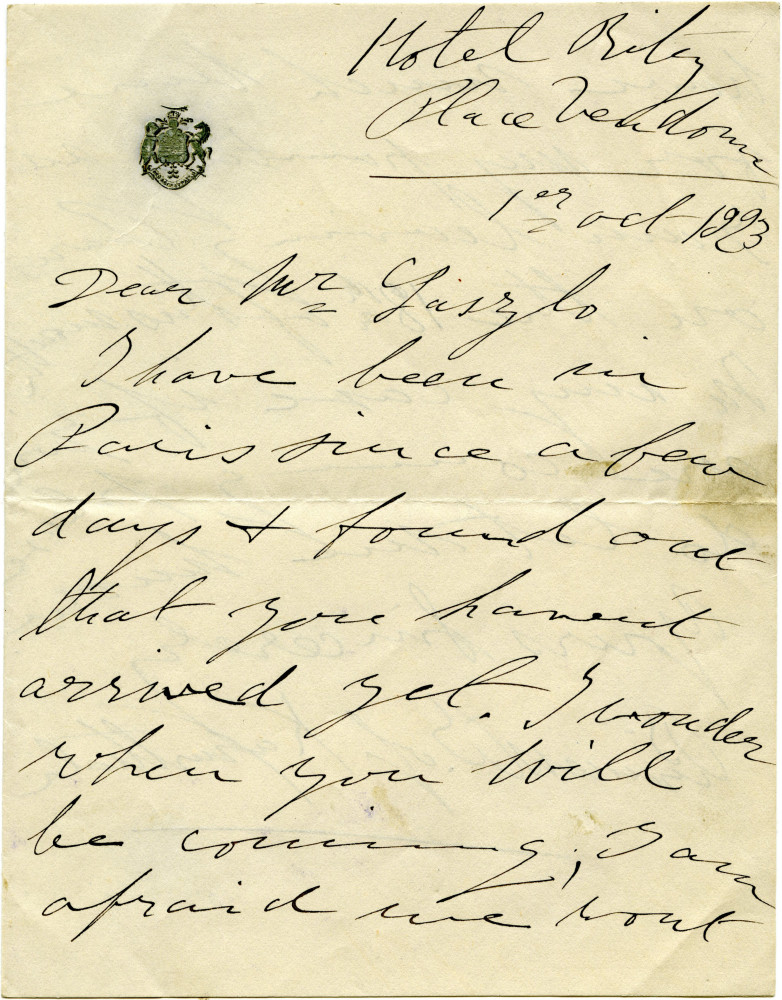 Hotel Ritz
Place Vendome
1er oct 1923
Dear Mr Laszlo
I have been in
Paris since a few
days & found out
that you haven't
arrived yet. I wonder
when you will
be coming; I am
afraid we wont